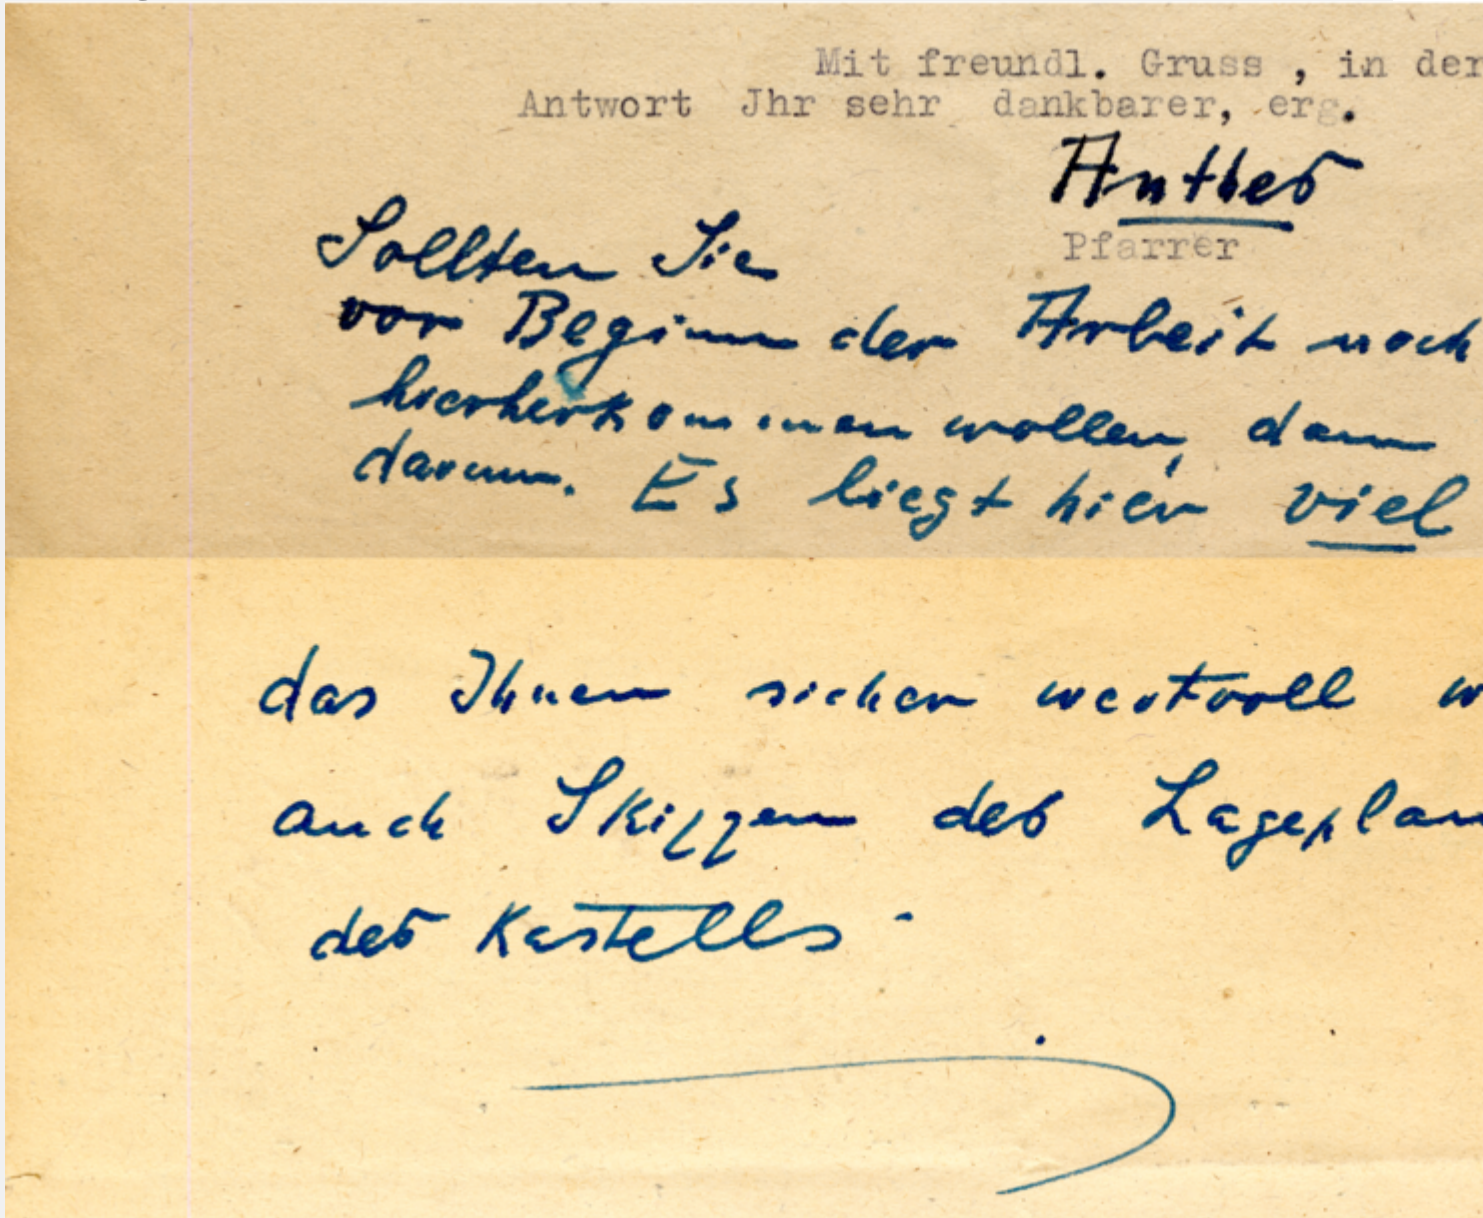 Mit freundl. Gruss , in der
Antwort Jhr sehr dankbarer, erg.
Anthes
Pfarrer
Sollten Sie
vor Beginn der Arbeit noch
hierherkommen wollen, dann
darum. Es liegt hier viel
das Ihnen sicher wertvoll w
auch Skizzen des Lageplan
des Kastells.